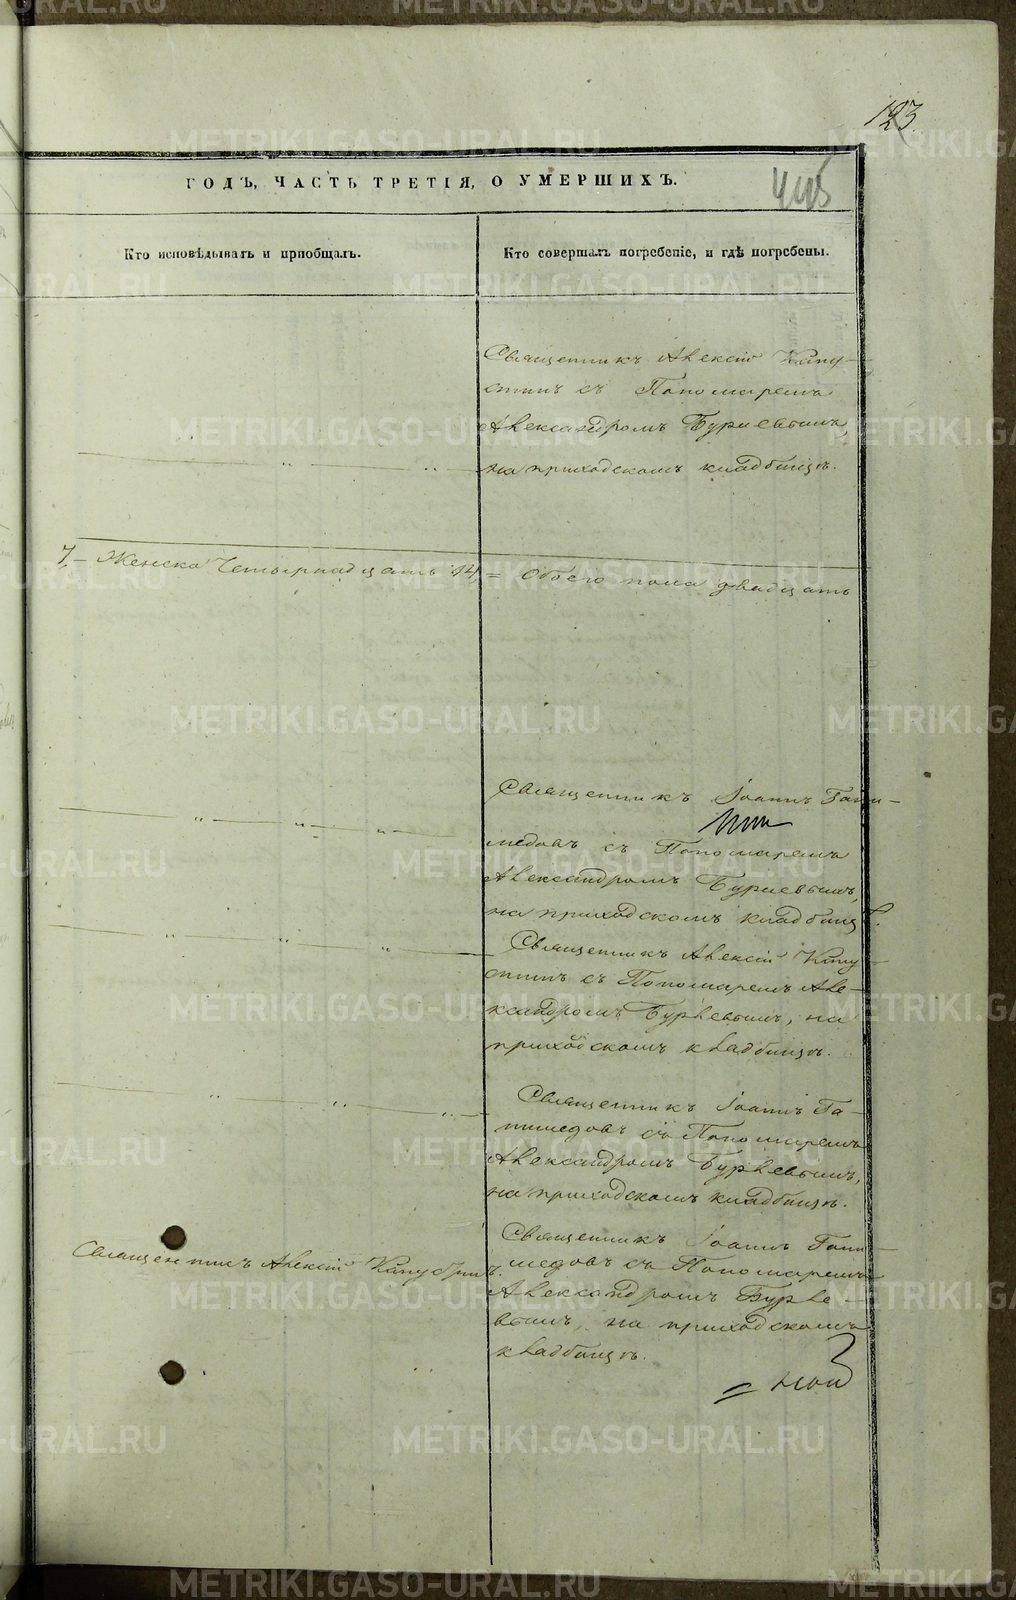 123
445
ГОДЪ, ЧАСТЬ ТРЕТІЯ, О УМЕРШИХЪ.
Кто исповѣдывалъ и пріобщалъ.
Кто совершалъ погребеніе, и гдѣ погребены.
Священникъ Алексій Капу-
стинъ съ Пономаремъ
Александромъ Бурневымъ,
на приходскомъ кладбищѣ.
7,- Женска Четырнадцать 14, = Обоего пола двадцать
Священникъ Іоаннъ Гани-
медовъ съ Пономаремъ
Александромъ Бурневымъ,
на приходскомъ кладбищѣ.
Священникъ Алексій Капу-
стинъ съ Пономаремъ Але-
ксандромъ Бурневымъ, на
приходскомъ кладбищѣ.
Священникъ Іоаннъ Га-
нимедовъ съ Пономаремъ
Александромъ Бурневымъ,
на приходскомъ кладбищѣ.
Священникъ Алексій Капустинъ.
Священникъ Іоаннъ Гани-
медовъ съ Пономаремъ
Александромъ Бурне-
вымъ, на приходскомъ
кладбищѣ.
METRIKI.GASO-URAL.RU